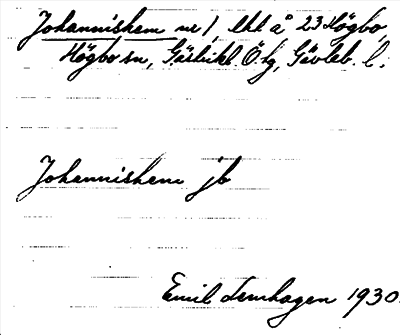 Johannishem nr 1, lht å 23 Högbo,
Högbo sn, Gästrikl Ö. hg, Gävleb. l.
Johannishem jb
Emil Lemhagen 1930.